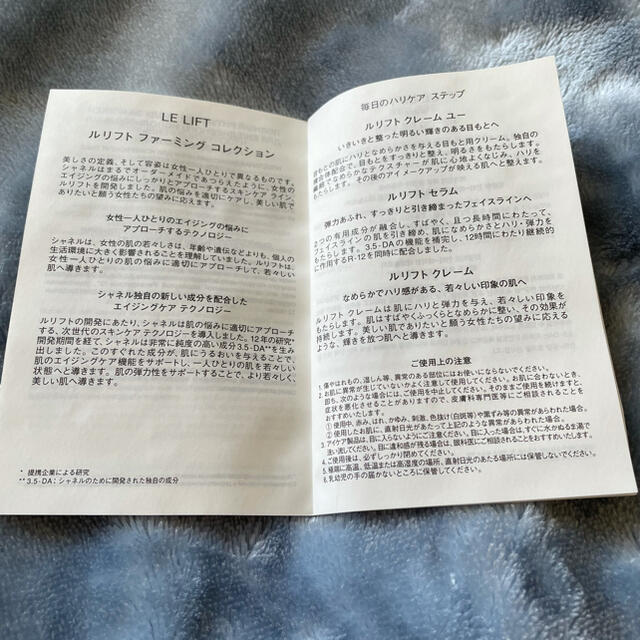 LE LIFT
ルリフト ファーミング コレクション
美しさの定義、そして容姿は女性一人ひとりで異なるものです。
シャネルはまるでオーダーメイドであつらえたように、女性の
エイジングの悩みにしっかりとアプローチするスキンケア ライン、
ルリフトを開発しました。肌の悩みを適切にケアし、美しい肌で
ありたいと願う女性たちの望みに応えます。
女性一人ひとりのエイジングの悩みに
アプローチするテクノロジー
シャネルは、女性の肌の若々しさは、年齢や遺伝などよりも、個人の
生活環境に大きく影響されることを理解していました。ルリフトは、
女性一人ひとりの肌の悩みに適切にアプローチして、若々しい
肌へ導きます。
シャネル独自の新しい成分を配合した
エイジングケア テクノロジー
ルリフトの開発にあたり、シャネルは肌の悩みに適切にアプローチ
する、次世代のスキンケア テクノロジーを導入しました。12年の研究*
開発期間を経て、シャネルは非常に純度の高い成分3.5-DA**を生み
出しました。このすぐれた成分が、肌にうるおいを与えることで、
肌のエイジングケア機能をサポートし、一人ひとりの肌を若々しい
状態へ導きます。肌の弾力性をサポートすることで、より若々しく、
美しい肌へ導きます。
* 提携企業による研究
** 3.5-DA：シャネルのために開発された独自の成分
毎日のハリケア ステップ
ルリフト クレーム ユー
いきいきと整った明るい輝きのある目もとへ
目もとの肌にハリとなめかさを与える目もと用クリーム。独自の
配合で、目もとをすっきりと整え、明るさをもたらします。
なめらかなテクスチャーが肌に心地よくなじみ、ハリを
もたらします。その後のアイメークアップが映える肌へと整えます。
ルリフト セラム
弾力あふれ、すっきりと引き締まったフェイスラインへ
2つの有用成分が融合し、すばやく、且つ長時間にわたって、
フェイスラインの肌を引き締め、肌になめらかさとハリ・弾力を
もたらします。3.5-DAの機能を補完し、12時間にわたり継続的
に作用するR-12を同時に配合しました。
ルリフト クレーム
なめらかでハリ感がある、若々しい印象の肌へ
ルリフト クレームは肌にハリと弾力を与え、若々しい印象を
もたらします。肌はすばやくふっくらとなめらかに整い、その効果が
持続します。美しい肌でありたいと願う女性たちの望みに応える
ような、輝きを放つ肌へと導きます。
ご使用上の注意
1. 傷やはれもの、湿しん等、異常のある部位にはお使いにならないでください。
2. お肌に異常が生じていないかよく注意して使用してください。お肌に合わないとき、
即ち、次のような場合には、使用を中止してください。そのまま使用を続けますと、
症状を悪化させることがありますので、皮膚科専門医等にご相談されることを
おすすめいたします。
① 使用中、赤み、はれ、かゆみ、刺激、色抜け(白斑等)や黒ずみ等の異常があらわれた場合。
② 使用したお肌に、直射日光があたって上記のような異常があらわれた場合。
3. アイケア製品は、目に入らないようにご注意ください。目に入った場合は、すぐに水かぬるま湯で
洗い流してください。目に違和感が残る場合は、眼科医にご相談されることをおすすめします。
4. ご使用後は、必ずしっかり閉めてください。
5. 極端に高温、低温または高湿度の場所、直射日光のあたる場所には保管しないでください。
6. 乳幼児の手の届かないところに保管してください。